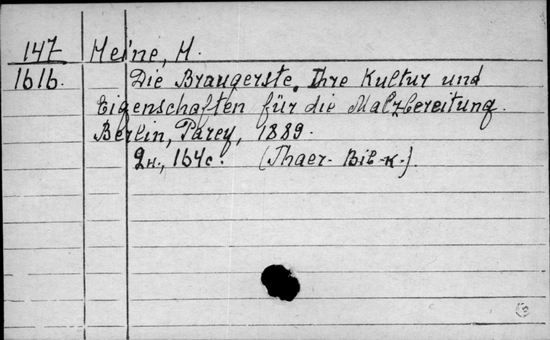 147 Heine, H.
1616. Die Braugerste. Ihre Kultur und
Eigenschaften für die Malzbereitung.
Berlin, Parey, 1889.
2н., 164с. (Thaer-Bib-к.)